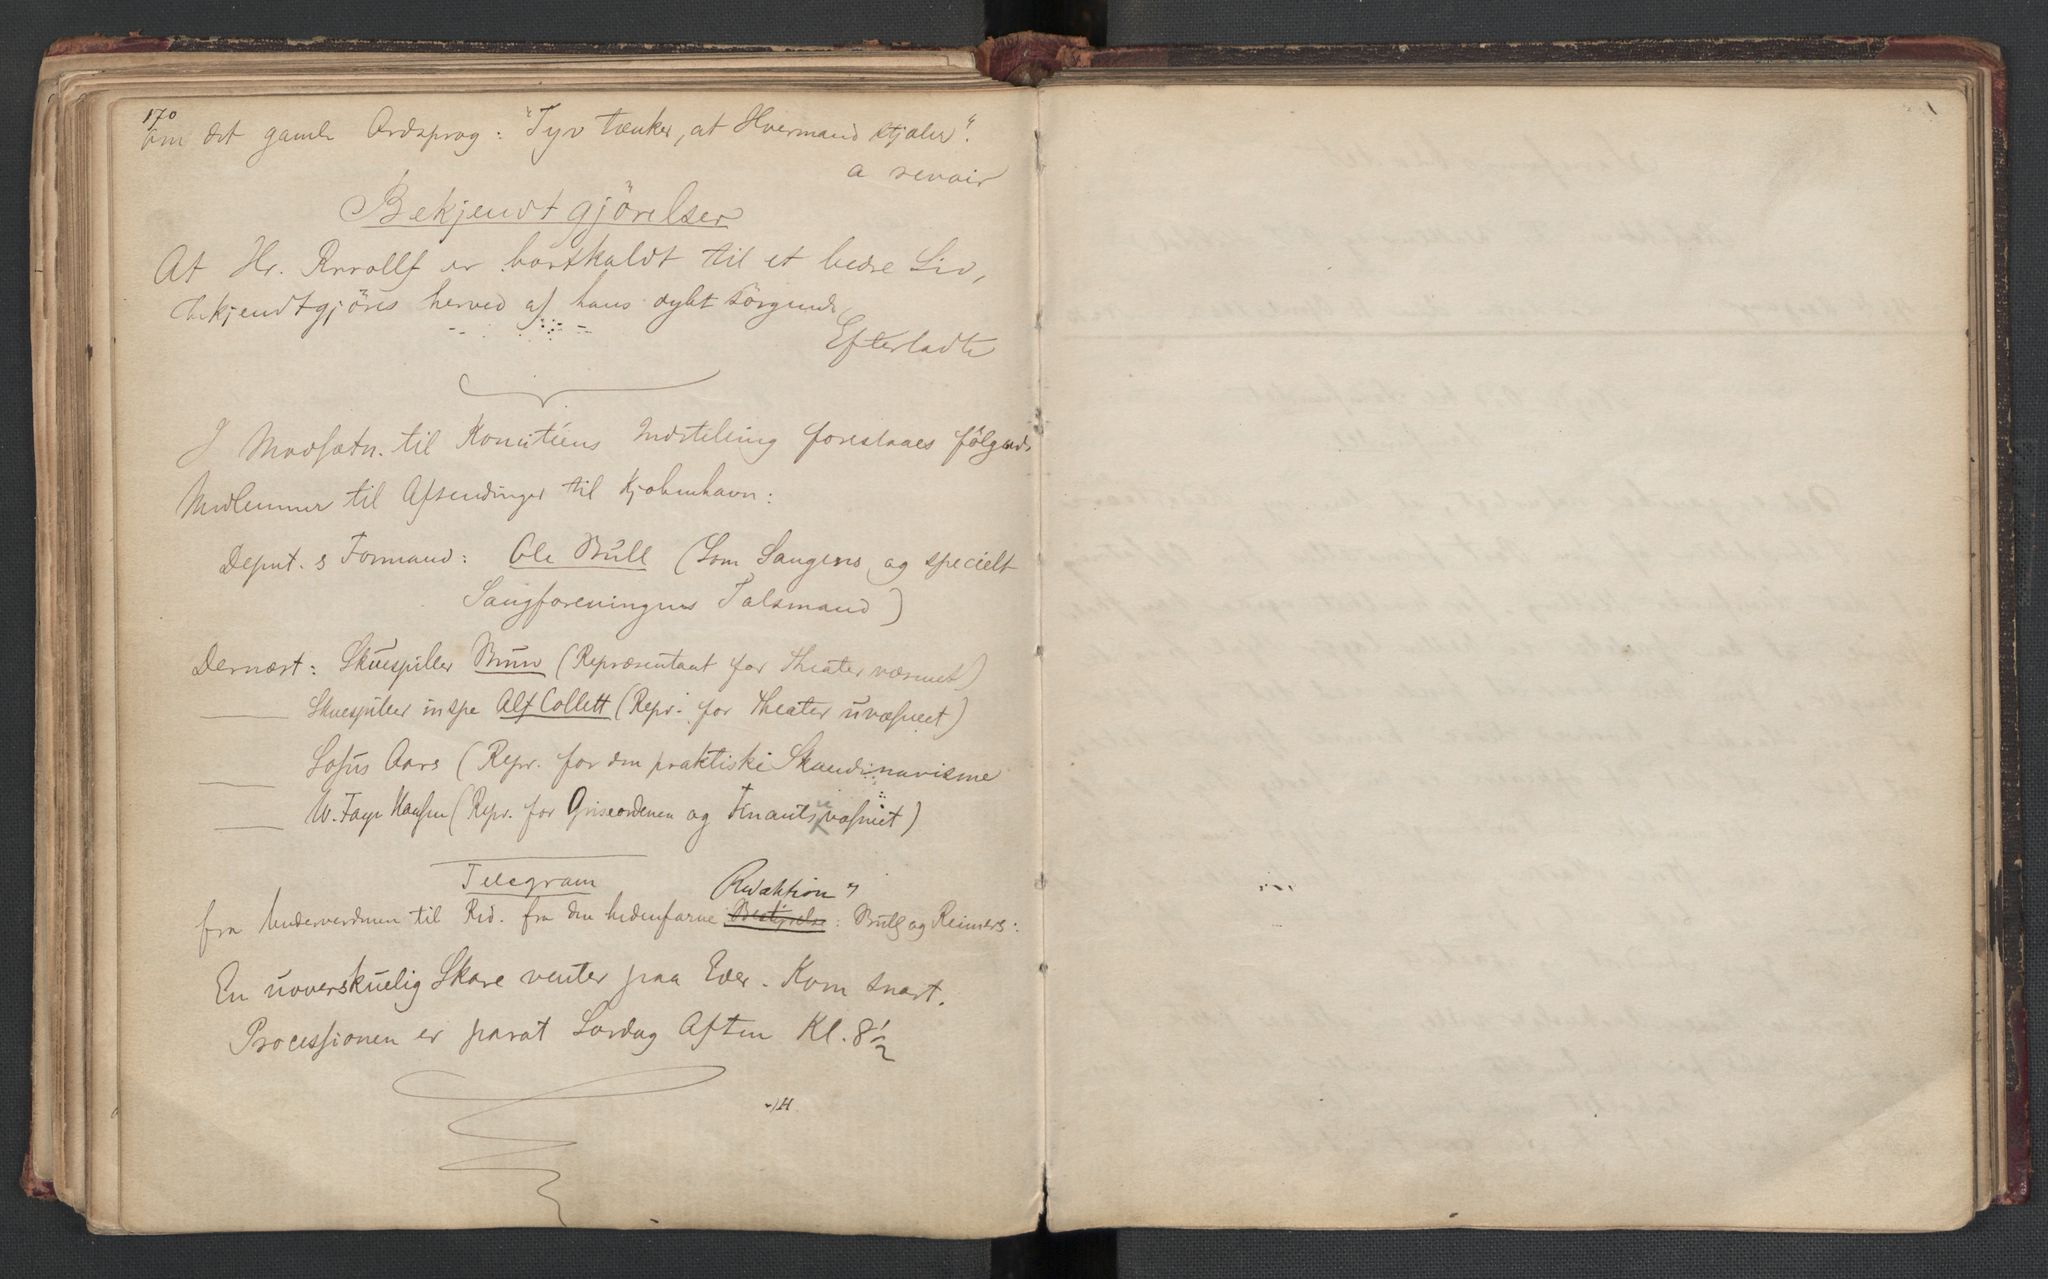 170
om det gamle Ordsprog: "Tyv tænker, at Hvermand stjæler".
a revoir
Bekjendtgjörelser
At Hr. Rrrollf er bortkaldt til et bedre Liv,
bekjendtgjöres herved af hans dybt sörgende
Efterladte
I Modsætn. til Komitéens Indstilling foreslaaes fölgende
Medlemmer til Afsendinger til Kjøbenhavn:
Deput.s Formand: Ole Bull (Som Sangens og specielt
Sangforeningens Talsmand)
Dernæst: Skuespiller Brun (Repræsentant for Theatervæsenet)
Skuespiller in spe Alf Collett (Repr. for Theateruvæsenet)
Sofus Aars (Repr. for den praktiske Skandinavisme
W. Faye Hanssen (Repr. for Griseordenen og Finantsvæsnet)
Telegram
Redaktion"
fra Underverdenen til Red. fra den hedenfarne Bestyrelse: Bull og Reimers:
En uoverskuelig Skare venter paa Eder. Kom snart.
Processionen er parat Lordag Aften Kl. 8½
-H.